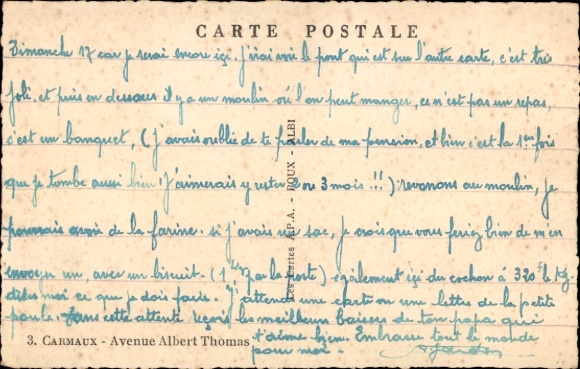 CARTE POSTALE
Dimanche 17 car je serai encore ici. J'irai voir le pont qui est sur l'autre carte, c'est très
joli. et puis en dessous il y a un moulin où l'on peut manger, ce n'est pas un repas,
c'est un banquet, (j'avais oublié de te parler de ma pension, et bien c'est la 1ère fois
que je tombe aussi bien J'aimerais y rester 2 ou 3 mois !!!) revenons au moulin, je
pourrais avoir de la farine. si j'avais un sac, je crois que vous feriez bien de m'en
envoyer un, avec un biscuit. (1 par la poste) également ici du cochon à 320f le Kg
dites moi ce que je dois faire. J'attends une carte ou une lettre de la petite
poule. Dans cette attente reçois les meilleurs baisers de ton papa qui
t'aime bien. Embrasse tout le monde
pour moi.
3. CARMAUX - Avenue Albert Thomas
Les Cartes A.P.A. - POUX - ALBI